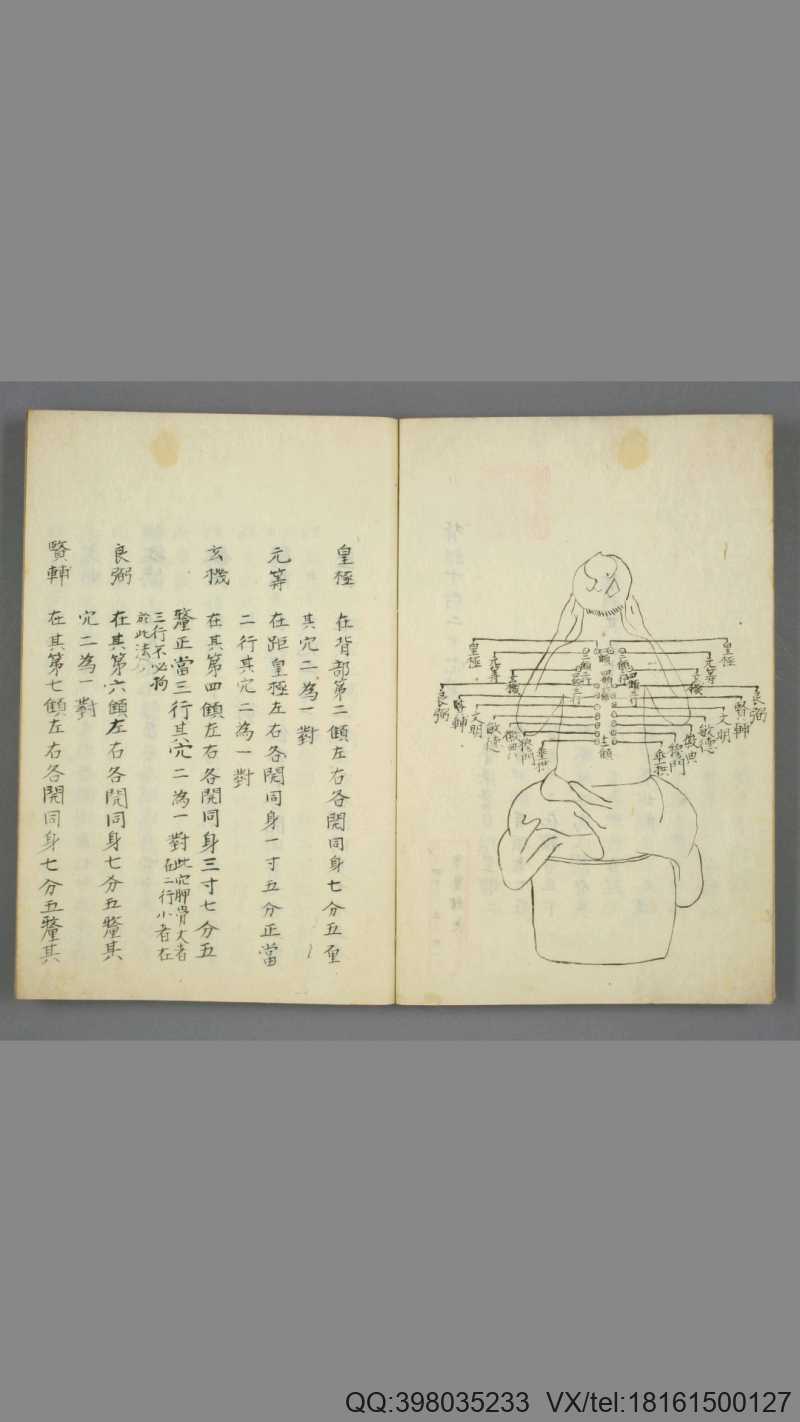 皇極
元等
玄機
良弼
賢輔
文明
敏德
徽典
垂拱
皇極
元等
玄機
良弼
賢輔
文明
敏德
徽典
垂拱
皇極 在背部第二顀左右各開同身七分五厘
其穴二為一對
元等 在距皇極左右各開同身一寸五分正當
二行其穴二為一對
玄機 在其第四顀左右各開同身三寸七分五
釐正當三行其穴二為一對 此穴胛骨大者
在二行小者在
三行不必拘
於此法
良弼 在其第六顀左右各開同身七分五釐其
穴二為一對
賢輔 在其第七顀左右各開同身七分五釐其
QQ:398035233 VX/tel:18161500127